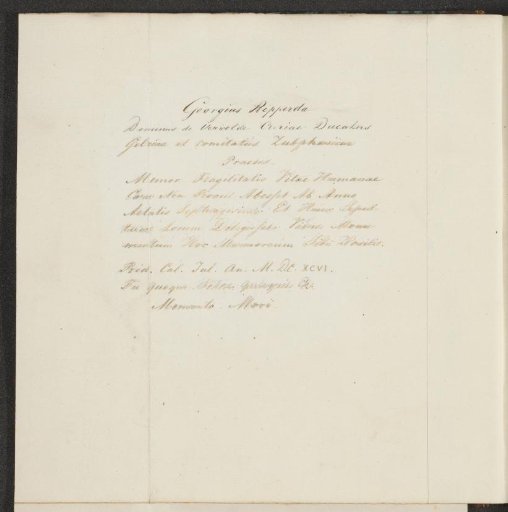 Georgius Ripperda
Dominus de Vervolde Curiae Ducatus
Gelriae et Comitatus Zutphaniae
Praeses.
Memor Fragilitatis Vitae Humanae
Cum Non Procul Abesset Ab Anno
Aetatis Septuagesimo Et Hunc Sepul
turae Locum Delegisset Vivus Monu
mentum Hoc Marmoreum Sibi Posuit.
Prid. Cal. Jul. An. M.D.C. XCVI.
Tu quoque
Memento Mori.